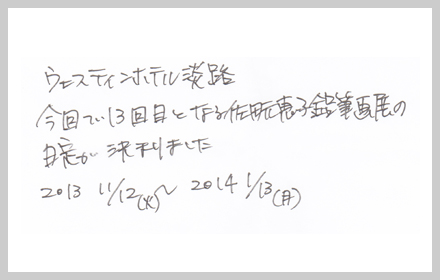 ウェスティンホテル淡路
今回で13回目となる佐畈恵子鉛筆画展の
日程が決まりました
2013 11/12(火)～ 2014 1/13(月)